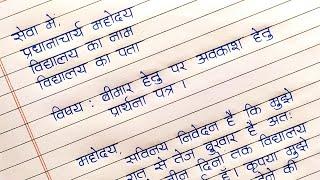 सेवा में,
प्रधानाचार्य महोदय
विद्यालय का नाम
विद्यालय का पता
विषय : बीमार हेतु पर अवकाश हेतु
प्रार्थना पत्र ।
महोदय, सविनय निवेदन है कि मुझे
रात से तेज बुखार है अतः
तीन दिनों तक विद्यालय
हूँ । कृपया मुझे
की